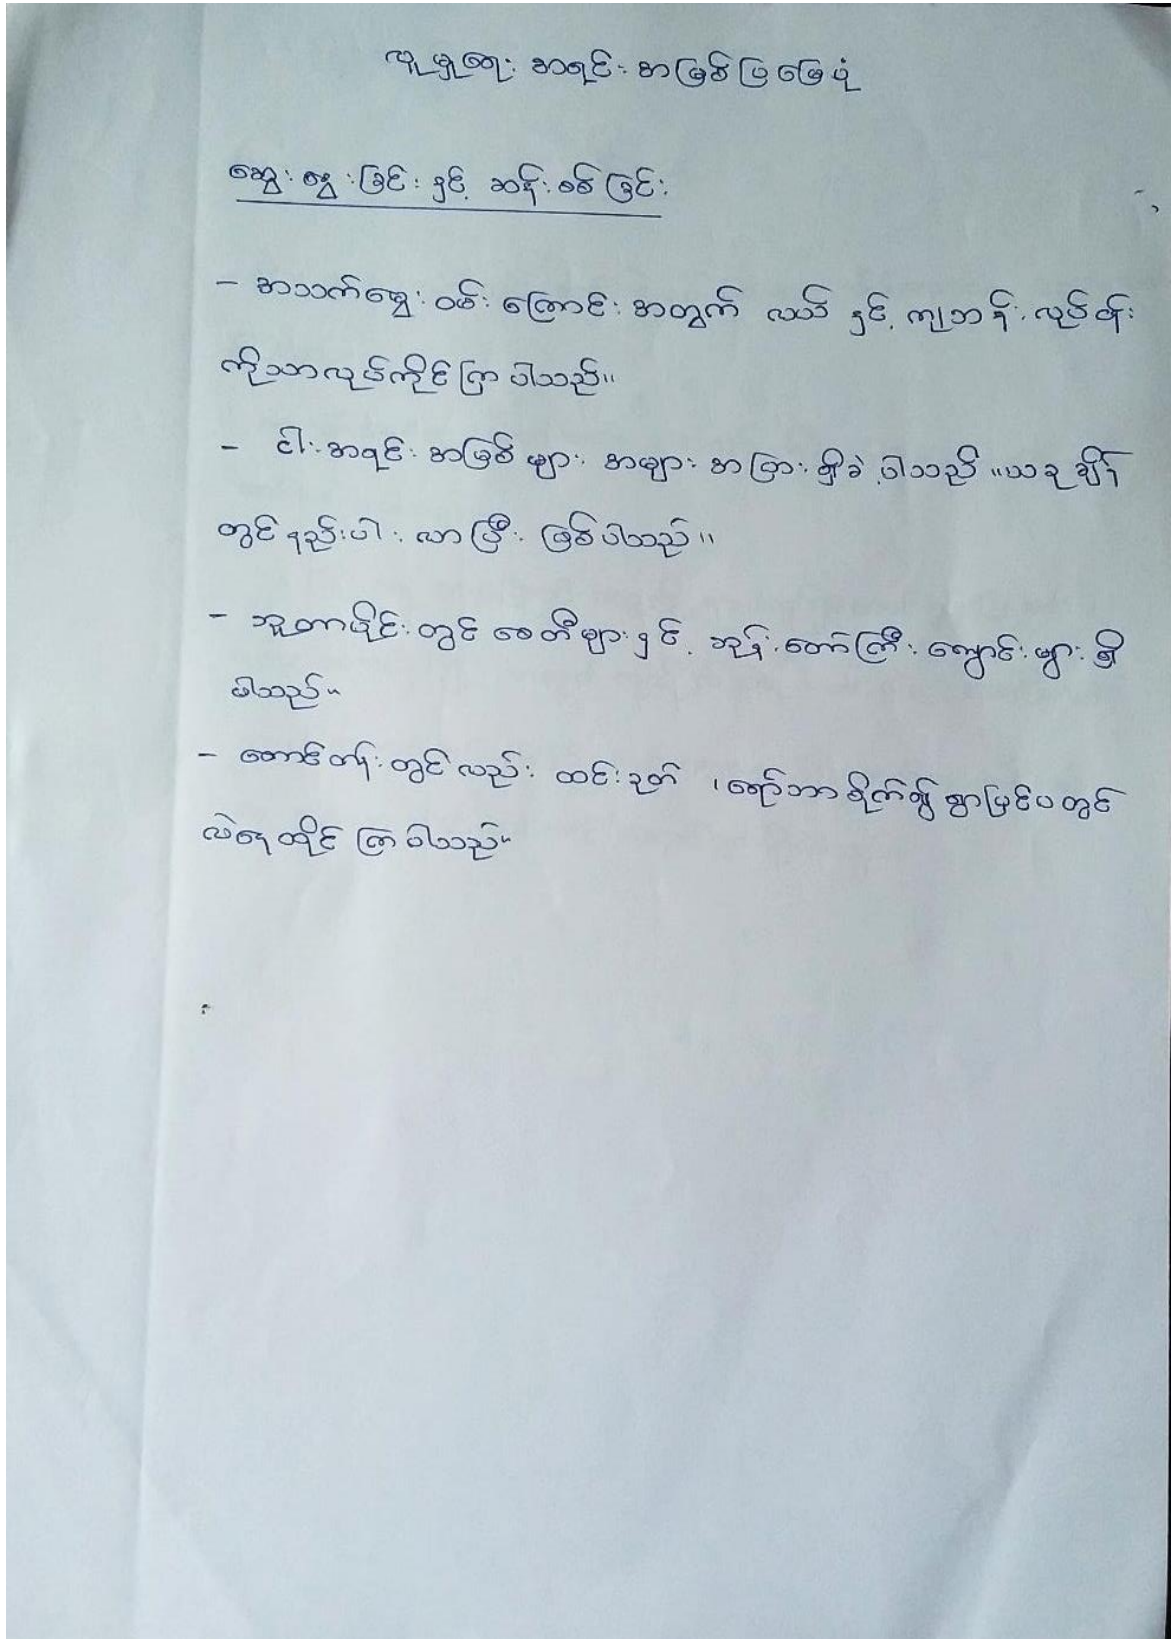 လူမှုရေး အရင်းအမြစ်ပြမြေပုံ
ဆွေးနွေးခြင်းနှင့် ဆန်းစစ်ခြင်း
- အသက်မွေးဝမ်းကြောင်းအတွက် လယ်နှင့် ကျွဘန်းလုပ်ငန်း
ကိုသာလုပ်ကိုင်ကြပါသည်။
- ငါးအရင်းအမြစ်များ အများအပြားရှိခဲ့ပါသည်။ယခုချိန်
တွင်နည်းပါးလာပြီး ဖြစ်ပါသည်။
- ဘူတာပိုင်းတွင် စေတီများနှင့် ဘုန်းတော်ကြီးကျောင်းများရှိ
ပါသည်။
- တောင်တန်းတွင်လည်း ထင်းခုတ် ၊ရော်ဘာစိုက်၍ရွာပြင်ပတွင်
လဲနေထိုင်ကြပါသည်။